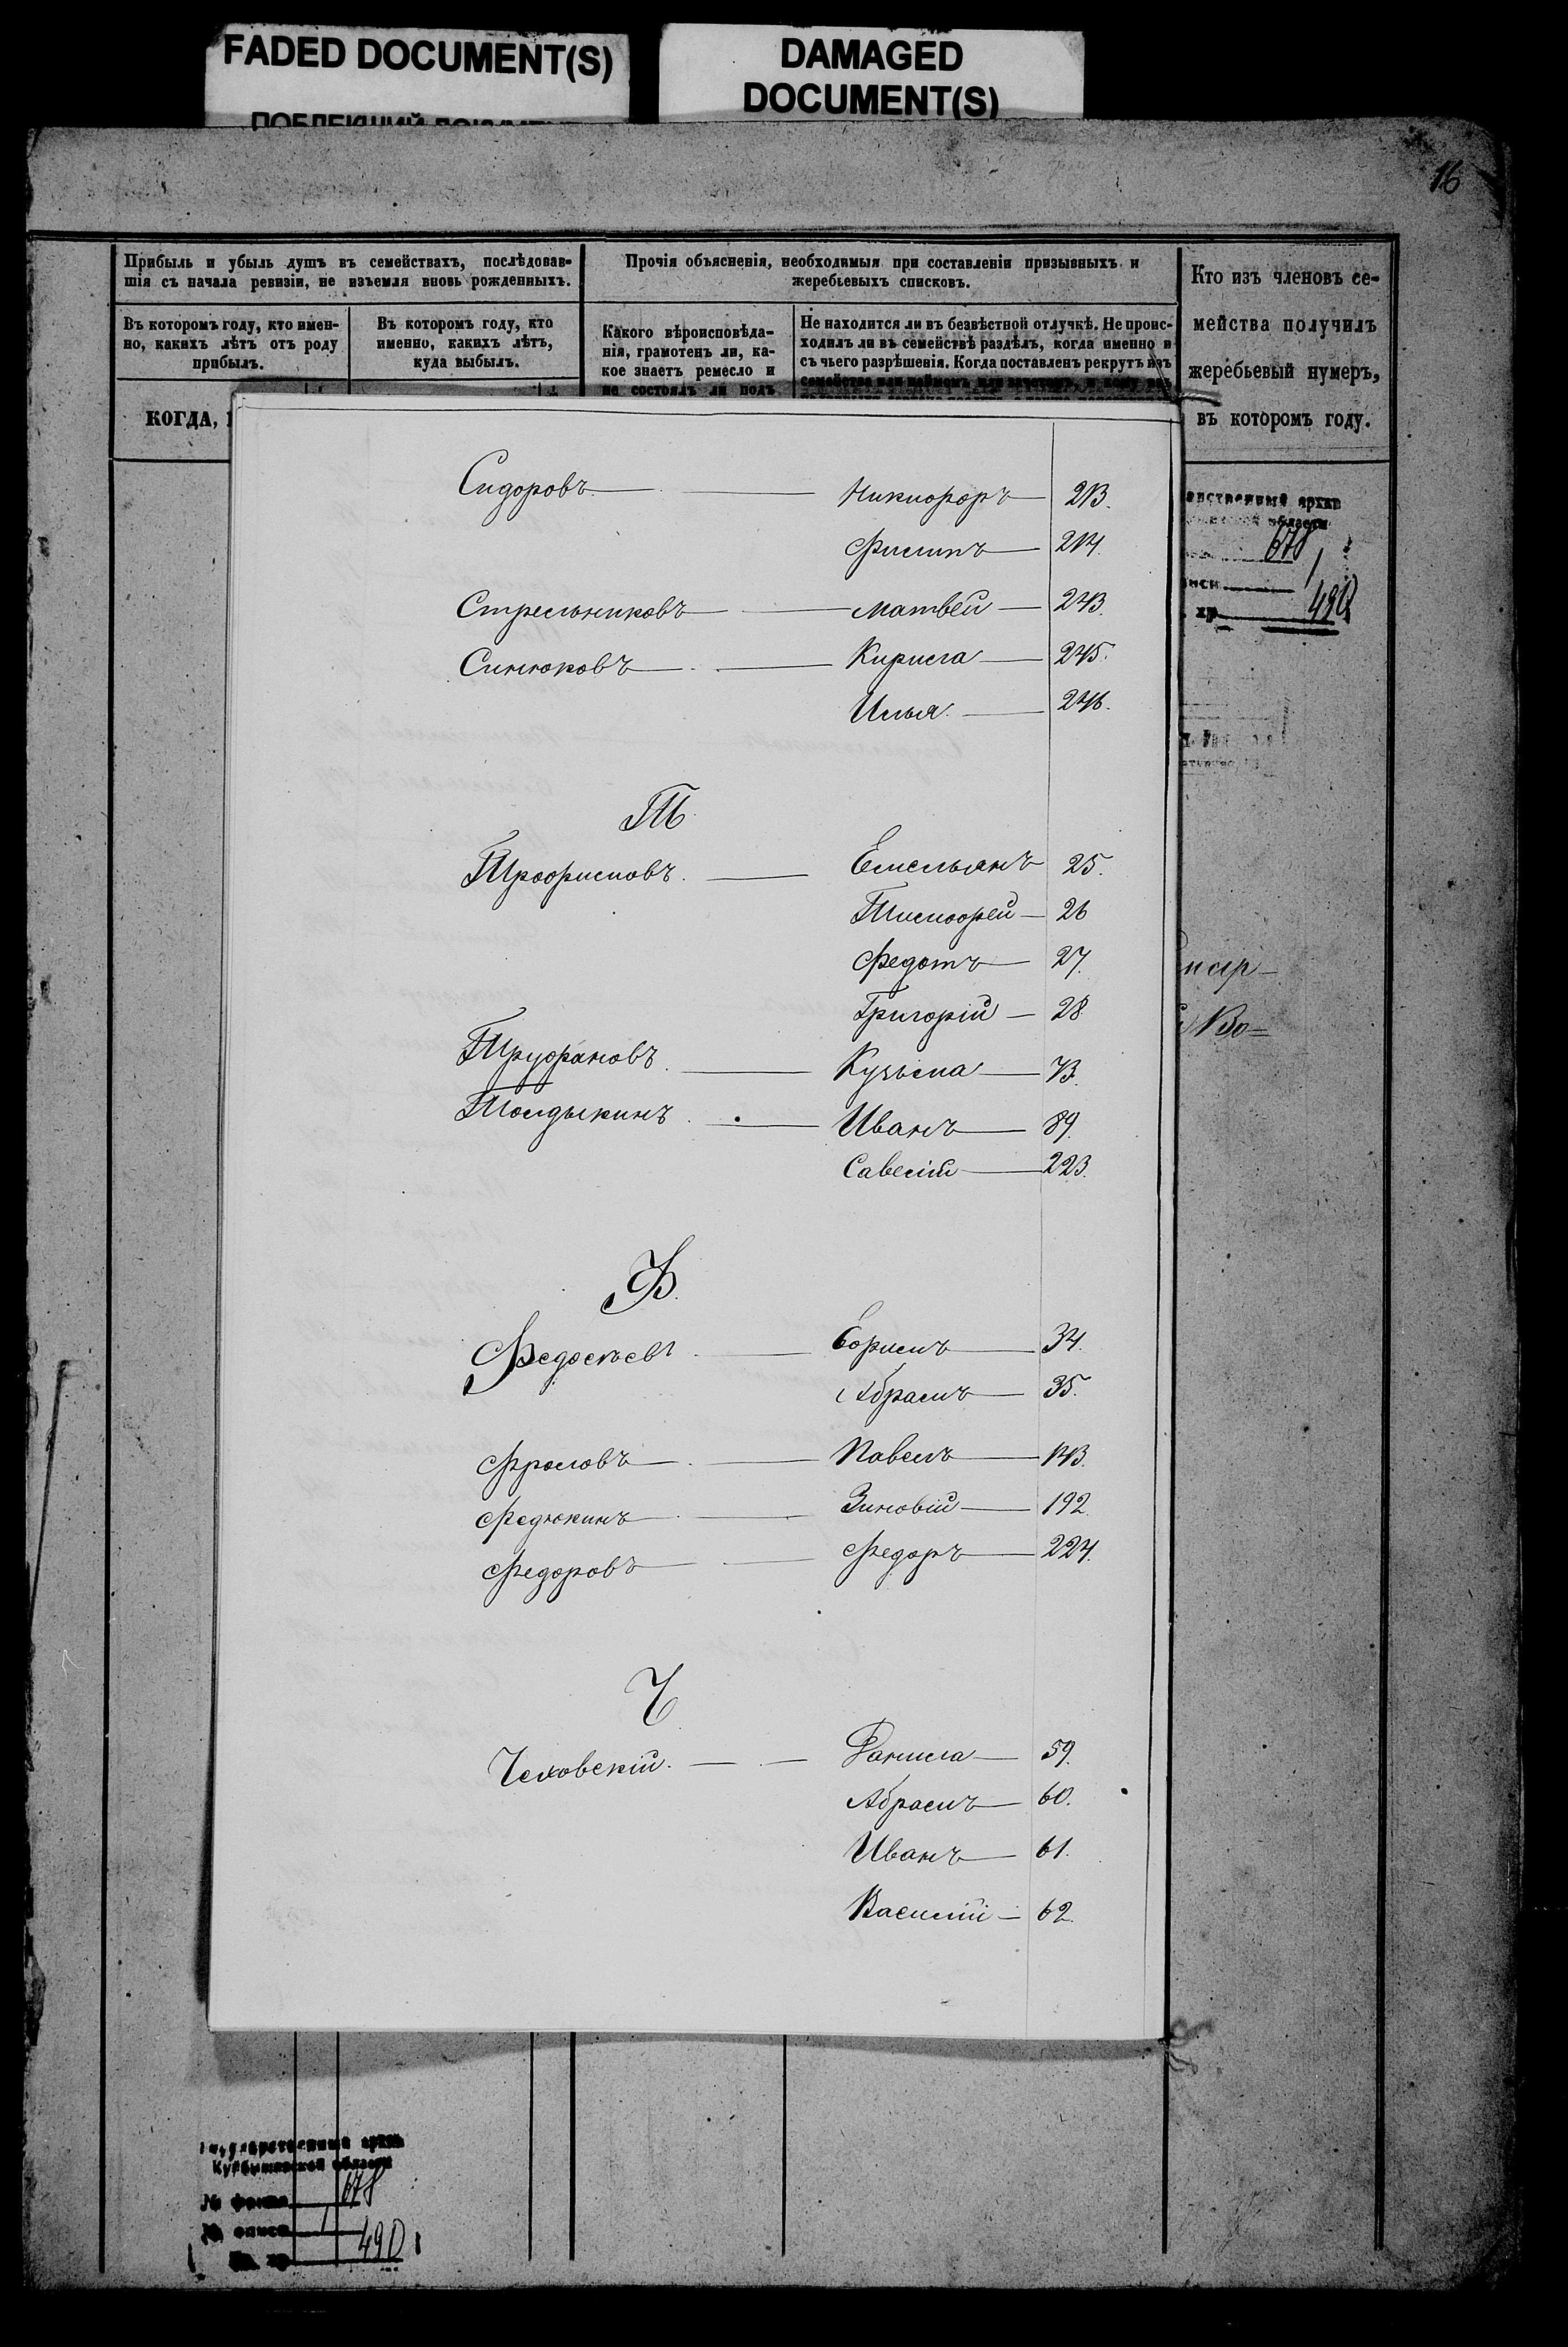 FADED DOCUMENT(S)
DAMAGED
DOCUMENT(S)
16
Прибыль и убыль душъ въ семействахъ, послѣдовав-
шія съ начала ревизіи, не изъемля вновь рожденныхъ.
Въ которомъ году, кто имен-
но, какихъ лѣтъ отъ роду
прибылъ.
Въ которомъ году, кто
именно, какихъ лѣтъ,
куда выбылъ.
КОГДА,
Прочія объясненія, необходимыя при составленіи призывныхъ и
жеребьевыхъ списковъ.
Какого вѣроисповѣда-
нія, грамотенъ ли, ка-
кое знаетъ ремесло и
не состоялъ ли подъ
Не находится ли въ безвѣстной отлучкѣ. Не проис-
ходилъ ли въ семействѣ раздѣлъ, когда именно и
съ чьего разрѣшенія. Когда поставленъ рекрутъ изъ
семейства или наймомъ или зачетомъ, и кому
Кто изъ членовъ се-
мейства получилъ
жеребьевый нумеръ,
въ которомъ году.
Сидоровъ — Никифоръ — 213.
Филипъ — 214.
Стрельниковъ — Матвей — 243.
Синюковъ — Кирила — 245.
Илья — 246.
Т
Трофимовъ. — Емельянъ 25.
Тимофей — 26
Федотъ — 27.
Григорій — 28
Труфановъ. — Кузьма — 73.
Толдыкинъ. — Иванъ — 89.
Савелій — 223.
Ф.
Федосеевъ — Борисъ — 34.
Абрамъ — 35.
Фроловъ — Павелъ — 143.
Федюкинъ — Зиновій — 192
Федоровъ — Федоръ — 224.
Ч
Чеховскій. — Данила — 59.
Абрамъ — 60.
Иванъ — 61.
Василій — 62.
архив
области
678
1
490
Государственный архив
Куйбышевской области
№ фонда 678
№ описи 1
Ед. хр. 490